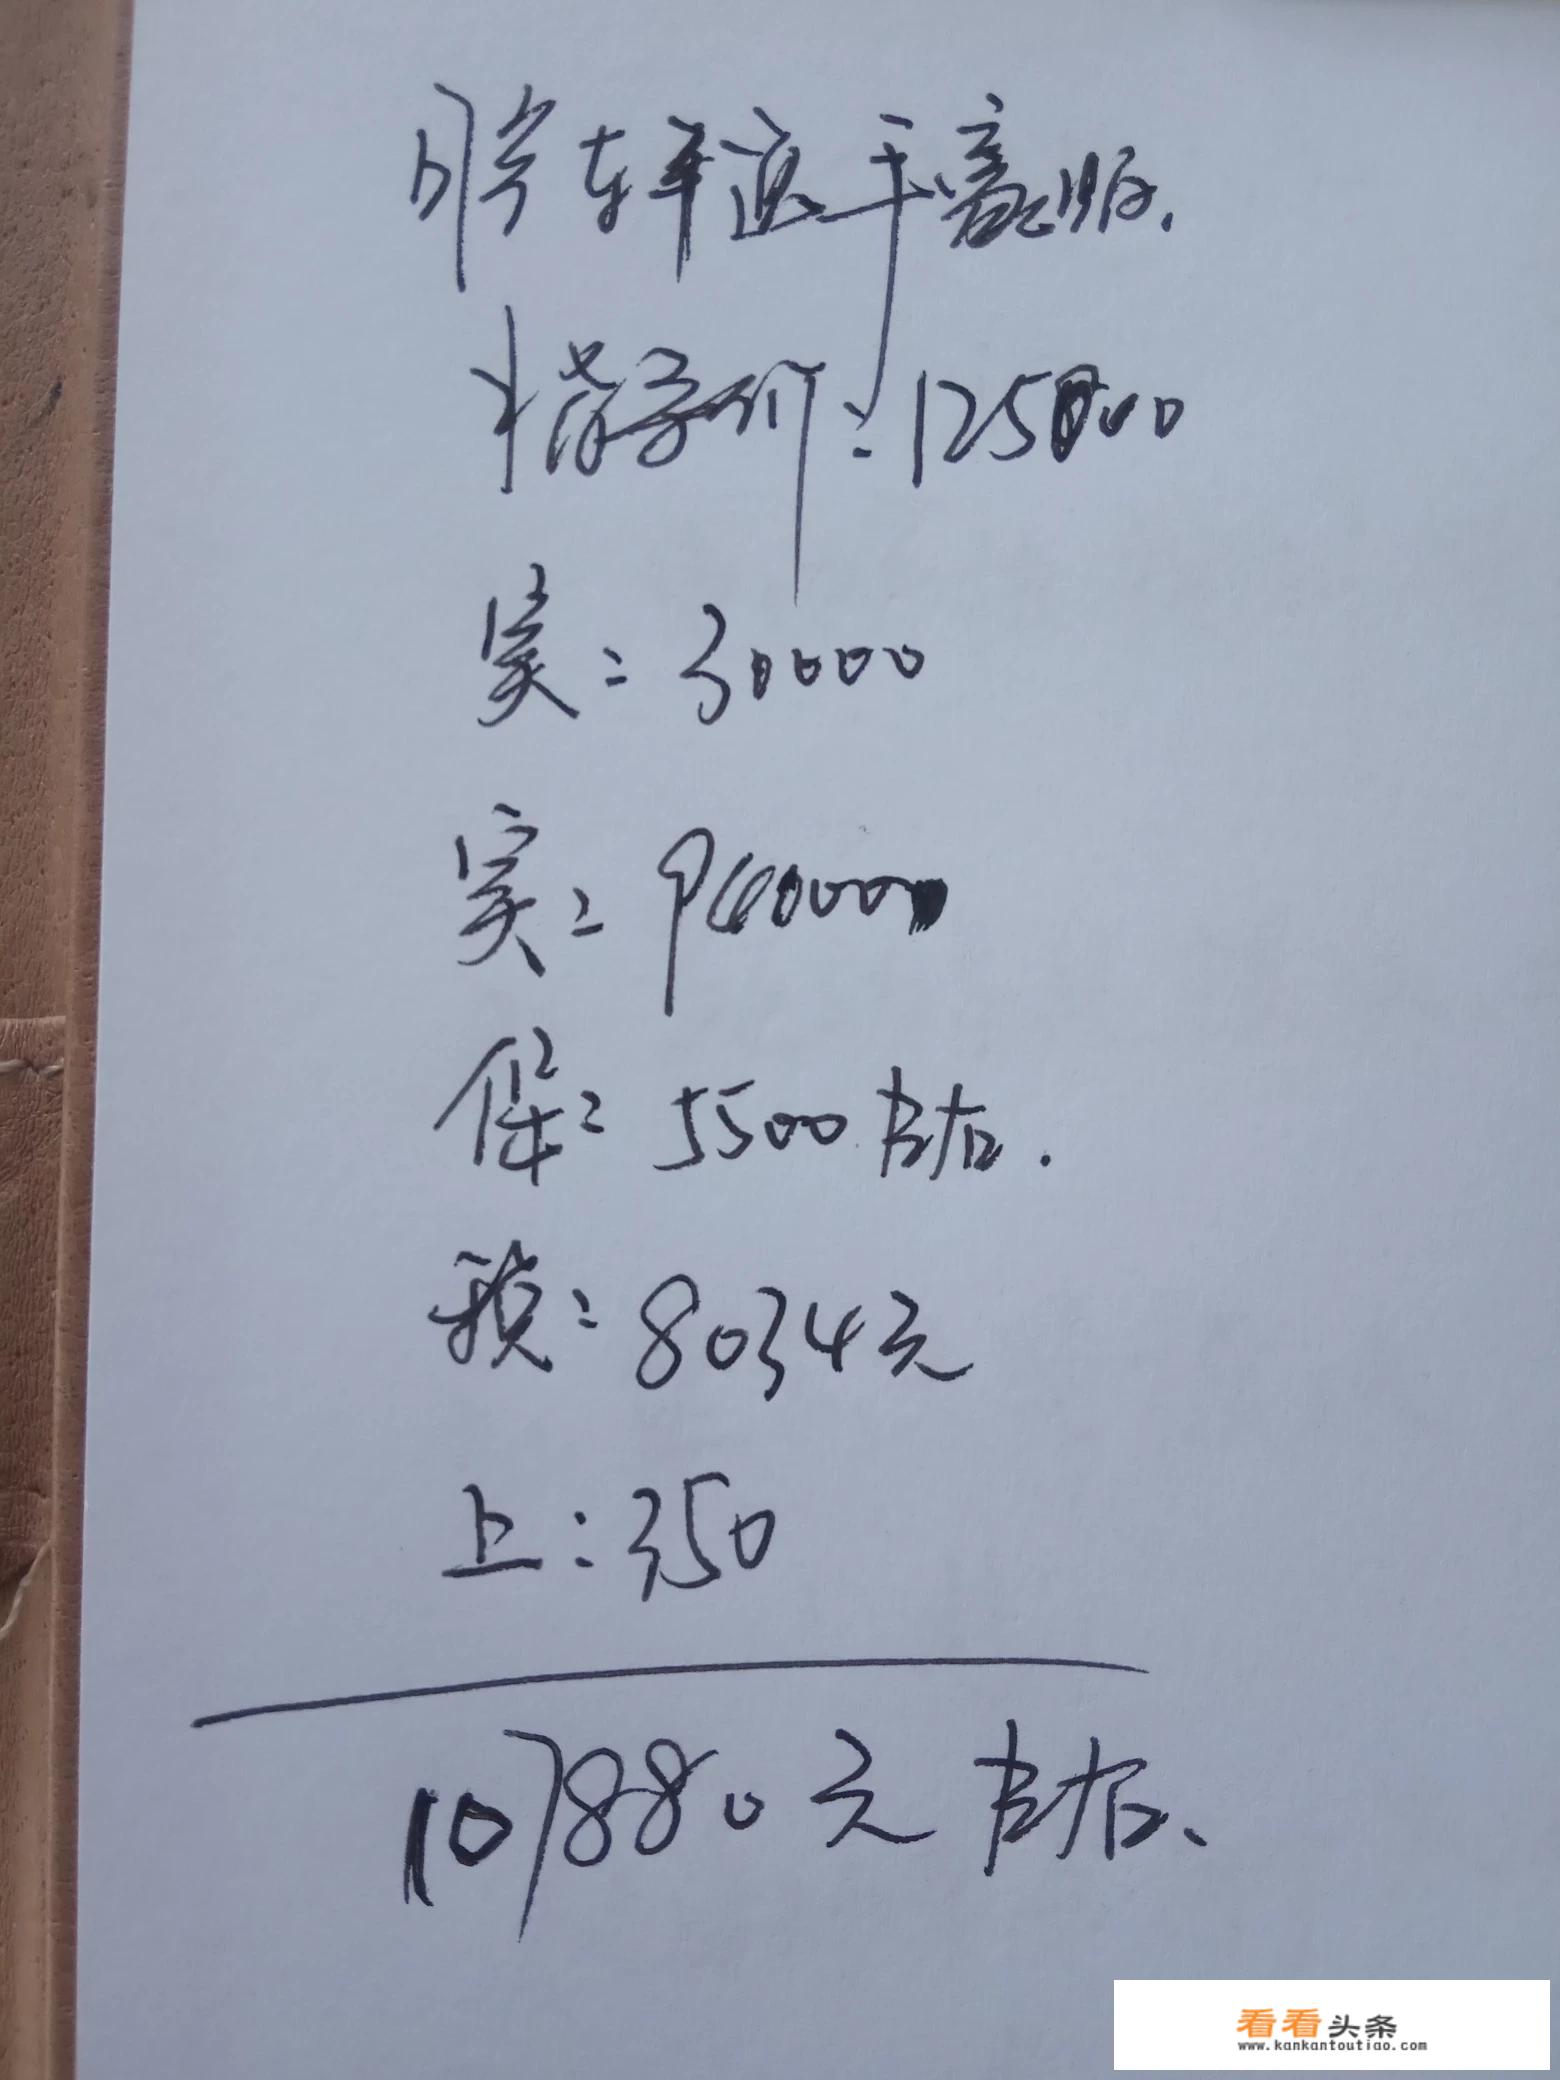 轩逸手豪版.
指导价:125800
实:30000
实:94000
保:5500左右.
税:8034元
上:350
107880元左右、
看看头条
www.kankantoutiao.com